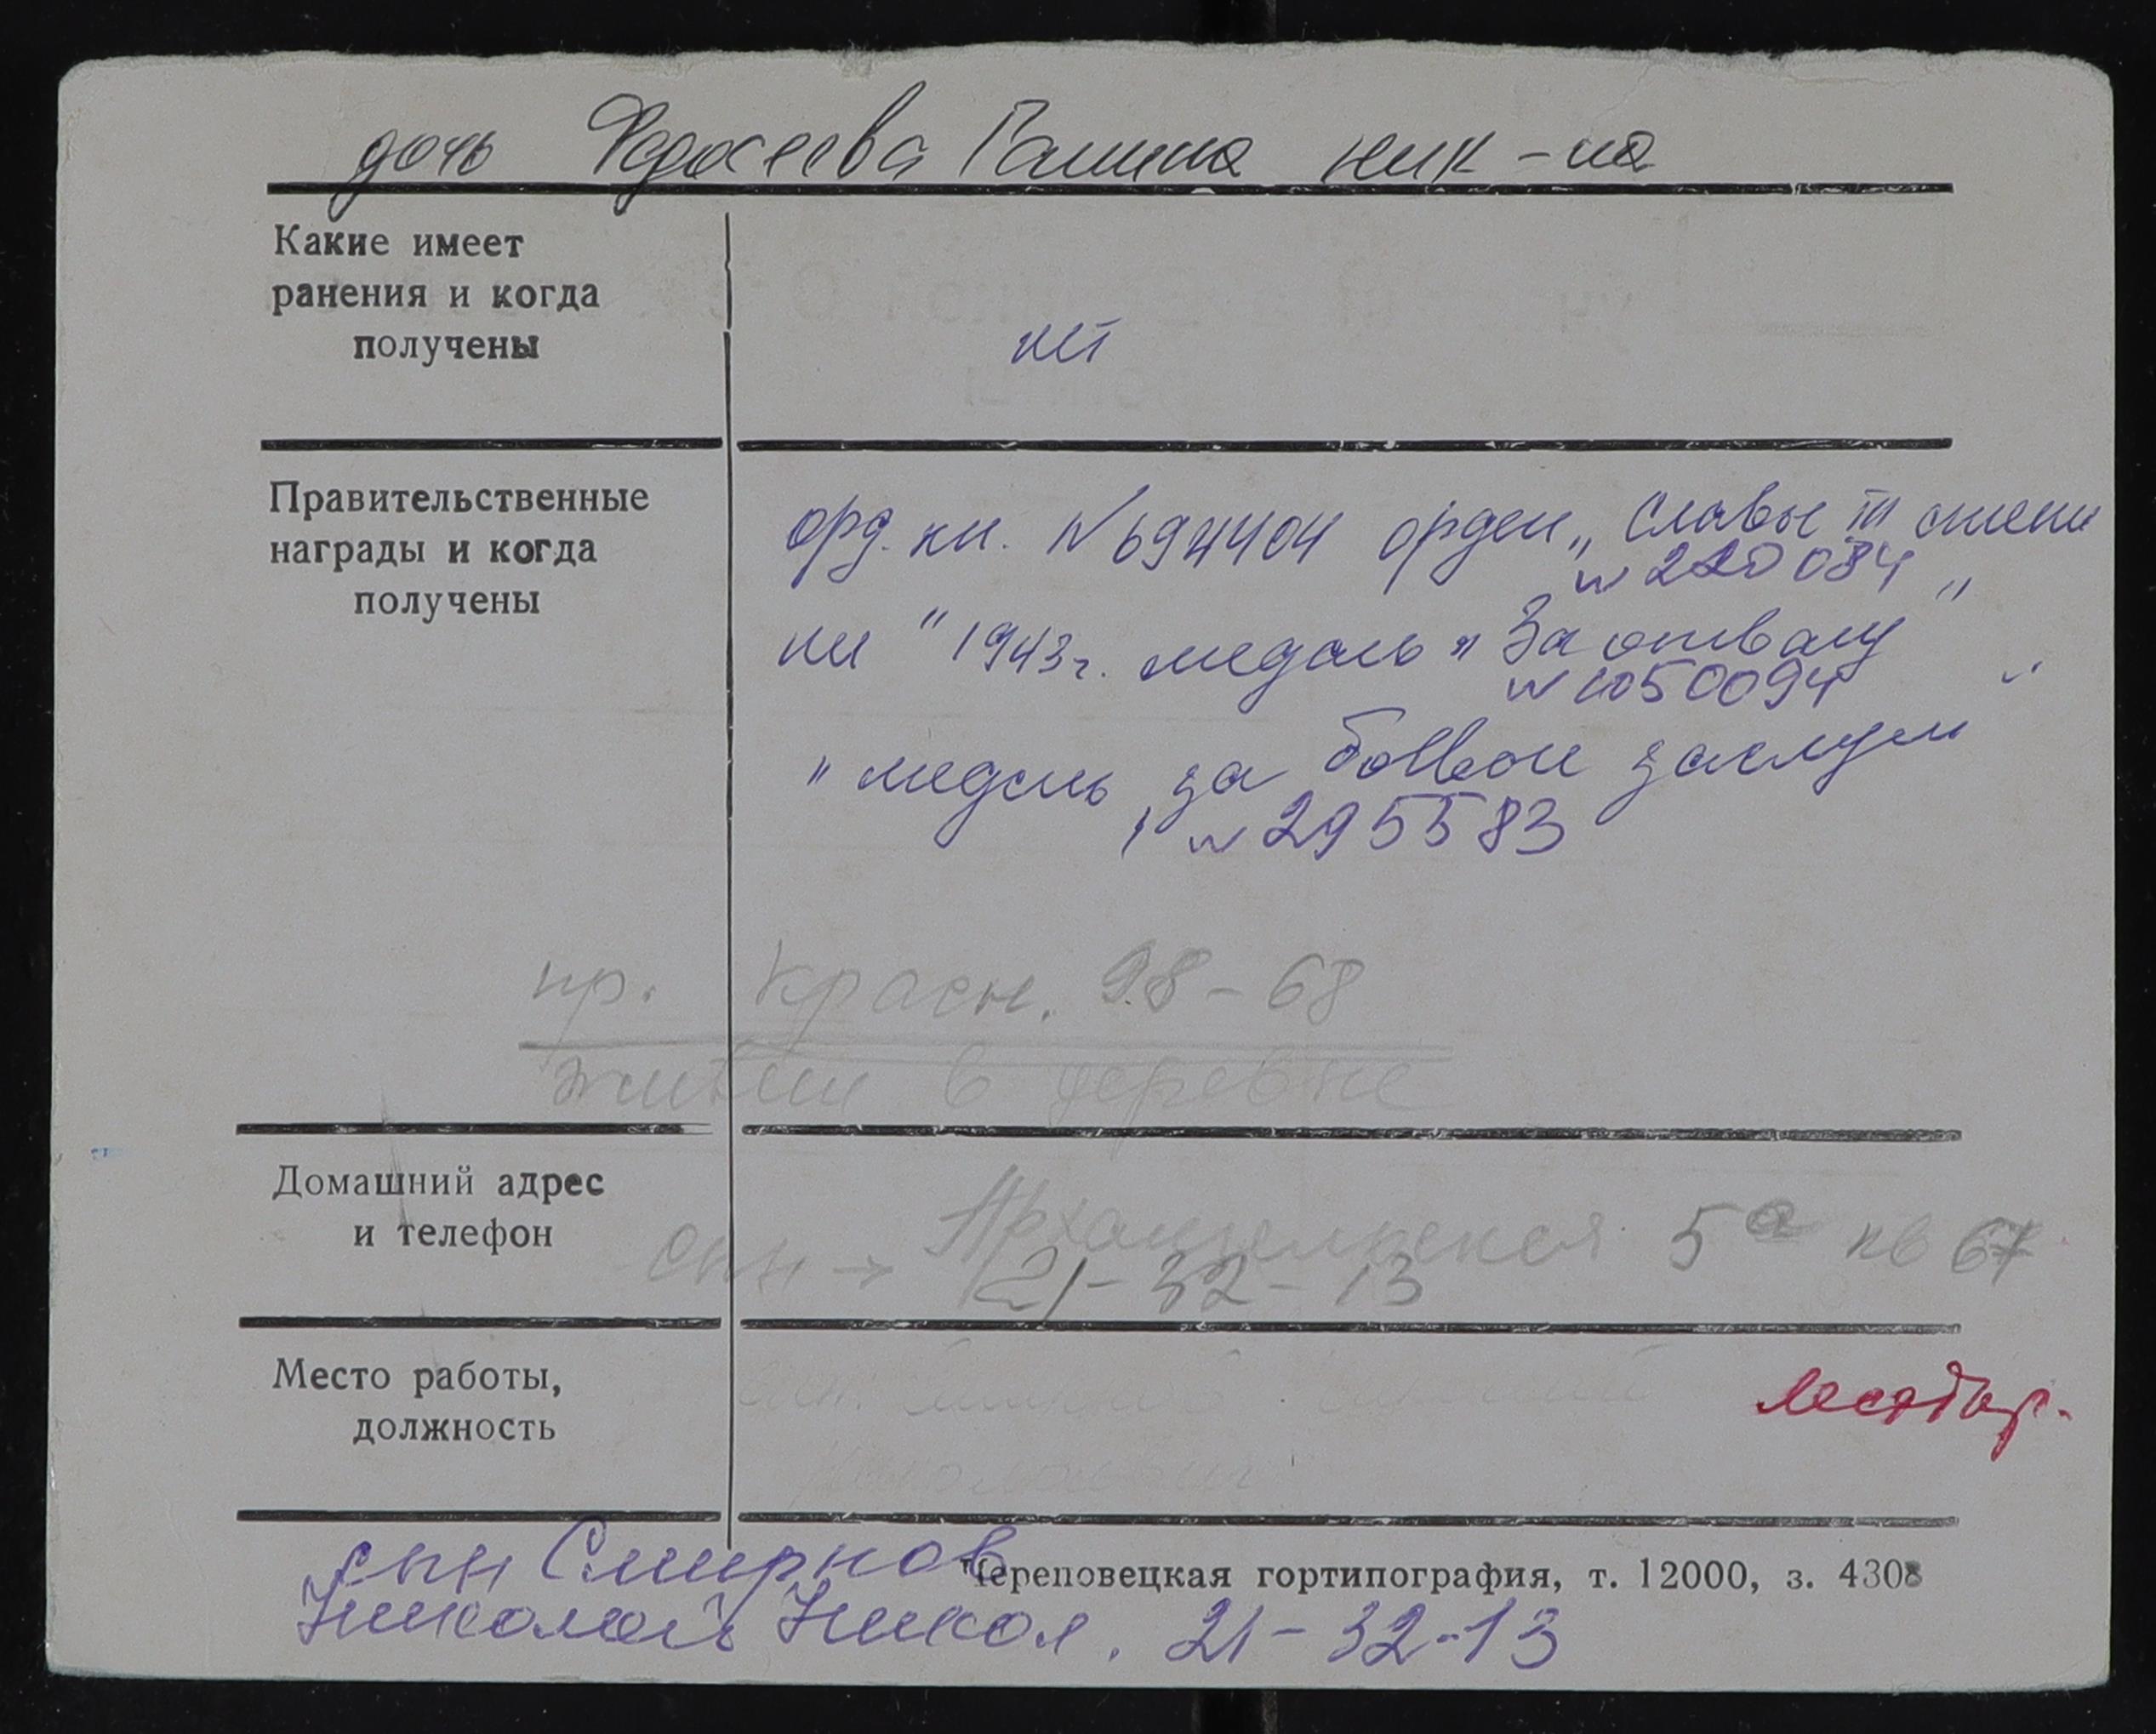 дочь Федосеева Галина ник-на
Какие имеет
ранения и когда
получены
нет
Правительственные
награды и когда
получены
орд. кн. №694404 орден „Славы III степе
№220084
ни" 1943г. медаль „За отвагу"
№1050094
" медаль „за боевые заслуги"
№295583
пр. Красн. 98-68
жители в деревне
Домашний адрес
и телефон
Архангельская 5а кв 67
сын → 21-32-13
Место работы,
должность
сын Смирнов
Николай Никол. 21-32-13
Череповецкая гортипография, т. 12000, з. 4308